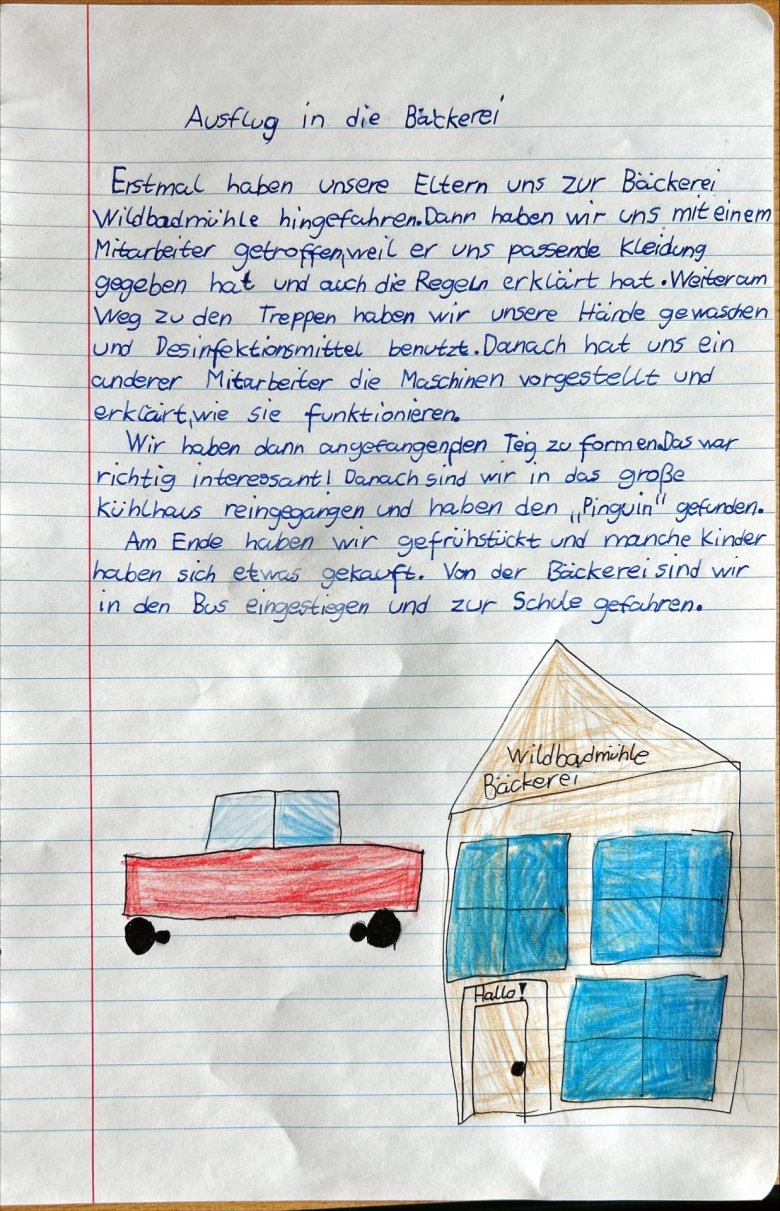 Ausflug in die Bäckerei
Erstmal haben unsere Eltern uns zur Bäckerei
Wildbadmühle hingefahren. Dann haben wir uns mit einem
Mitarbeiter getroffen, weil er uns passende Kleidung
gegeben hat und auch die Regeln erklärt hat. Weiter am
Weg zu den Treppen haben wir unsere Hände gewaschen
und Desinfektionsmittel benutzt. Danach hat uns ein
anderer Mitarbeiter die Maschinen vorgestellt und
erklärt, wie sie funktionieren.
Wir haben dann angefangen, den Teig zu formen. Das war
richtig interessant! Danach sind wir in das große
Kühlhaus reingegangen und haben den „Pinguin“ gefunden.
Am Ende haben wir gefrühstückt und manche Kinder
haben sich etwas gekauft. Von der Bäckerei sind wir
in den Bus eingestiegen und zur Schule gefahren.
Wildbadmühle
Bäckerei
Hallo!